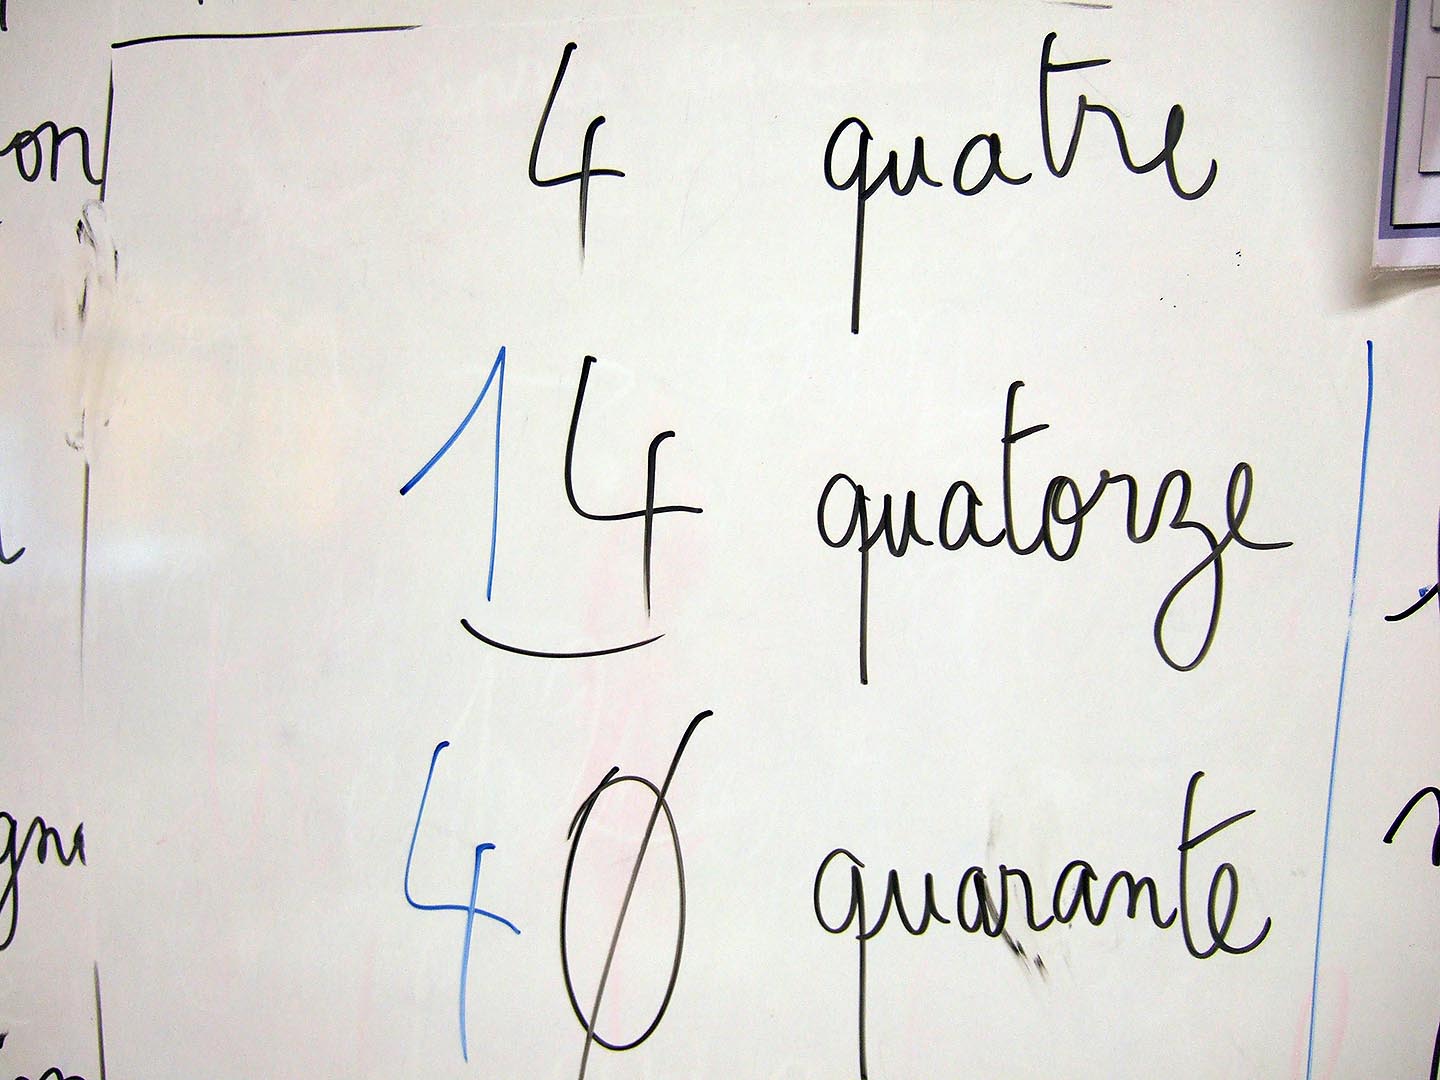 on
4 quatre
14 quatorze
40 quarante